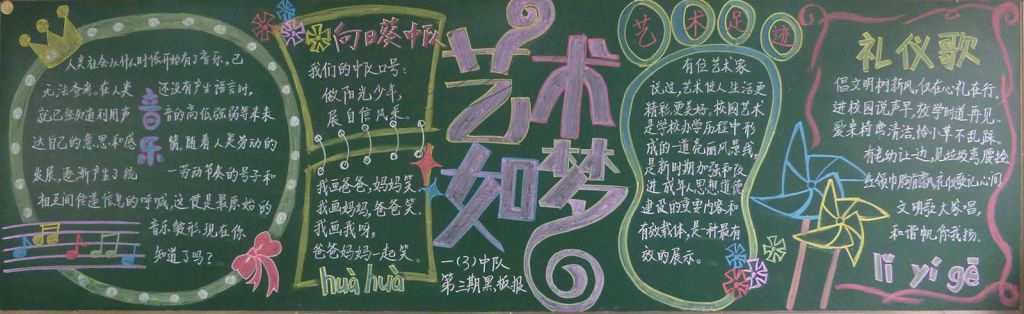 人类社会从什么时候开始有了音乐，已
无法考考，在人类 还没有产生语言时，
就已经知道利用声 音的高低强弱等来表
达自己的意思和感 情，随着人类劳动的
发展，逐渐产生了统 一劳动节奏的号子和
相互间传递信息的呼喊，这便是最原始的
音乐雏形，现在你
知道了吗？
音乐
向日葵中队
我们的中队口号：
做阳光少年，
展自信风采。
我画爸爸，妈妈笑，
我画妈妈，爸爸笑，
我画我呀，
爸爸妈妈一起笑。
huà huà
艺术
如梦
一(3)中队
第三期黑板报
艺术足迹
有位艺术家
说过，艺术使人生活更
精彩，更美好。校园艺术
是学校办学历程中形
成的一道亮丽风景线，
是新时期加强和改
进成年人思想道德
建设的重要内容和
有效载体，是一种最有
效的展示。
礼仪歌
倡文明，树新风，仪在心，礼在行。
进校园说声早，放学时道再见。
爱集体喜清洁，怜小草不乱踩。
有老幼让一边，见垃圾弯腰捡
红领巾胸前飘，礼仪歌记心间
文明歌大家唱，
和谐帆你我扬。
lǐ yí gē